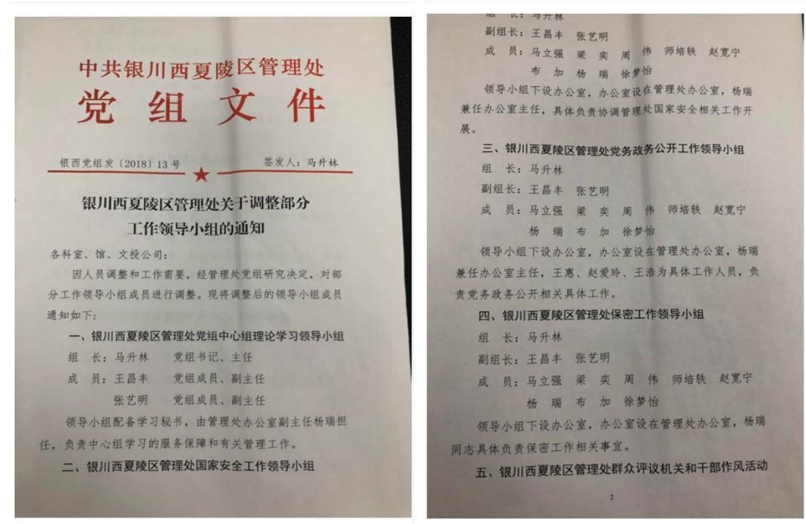 中共银川西夏陵区管理处
党组文件
银西党组发〔2018〕13号 签发人：马升林
银川西夏陵区管理处关于调整部分
工作领导小组的通知
各科室、馆、文投公司：
因人员调整和工作需要，经管理处党组研究决定，对部
分工作领导小组成员进行调整。现将调整后的领导小组成员
通知如下：
一、银川西夏陵区管理处党组中心组理论学习领导小组
组 长：马升林 党组书记、主任
成 员：王昌丰 党组成员、副主任
张艺明 党组成员、副主任
领导小组配备学习秘书，由管理处办公室副主任杨瑞担
任，负责中心组学习的服务保障和有关管理工作。
二、银川西夏陵区管理处国家安全工作领导小组
组 长：马升林
副组长：王昌丰 张艺明
成 员：马立强 梁 奕 周 伟 师培轶 赵宽宁
布 加 杨 瑞 徐梦怡
领导小组下设办公室，办公室设在管理处办公室，杨瑞
兼任办公室主任，具体负责协调管理处国家安全相关工作开
展。
三、银川西夏陵区管理处党务政务公开工作领导小组
组 长：马升林
副组长：王昌丰 张艺明
成 员：马立强 梁 奕 周 伟 师培轶 赵宽宁
杨 瑞 布 加 徐梦怡
领导小组下设办公室，办公室设在管理处办公室，杨瑞
兼任办公室主任，王惠、赵爱玲、王浩为具体工作人员，负
责党务政务公开相关具体工作。
四、银川西夏陵区管理处保密工作领导小组
组 长：马升林
副组长：王昌丰 张艺明
成 员：马立强 梁 奕 周 伟 师培轶 赵宽宁
杨 瑞 布 加 徐梦怡
领导小组下设办公室，办公室设在管理处办公室，杨瑞
同志具体负责保密工作相关事宜。
五、银川西夏陵区管理处群众评议机关和干部作风活动
2